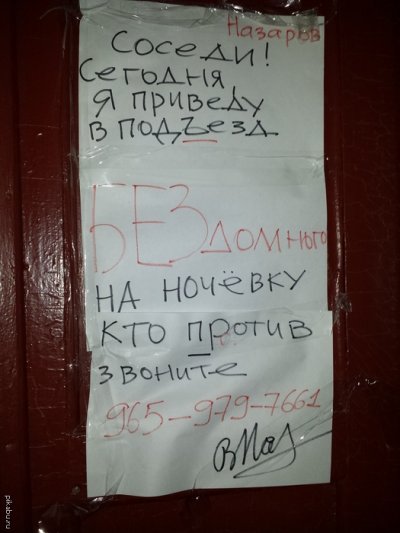 Назаров
Соседи!
Сегодня
я приведу
в подъезд
БЕЗдомного
на ночёвку
кто против
звоните
965-979-7661
pikabu.ru